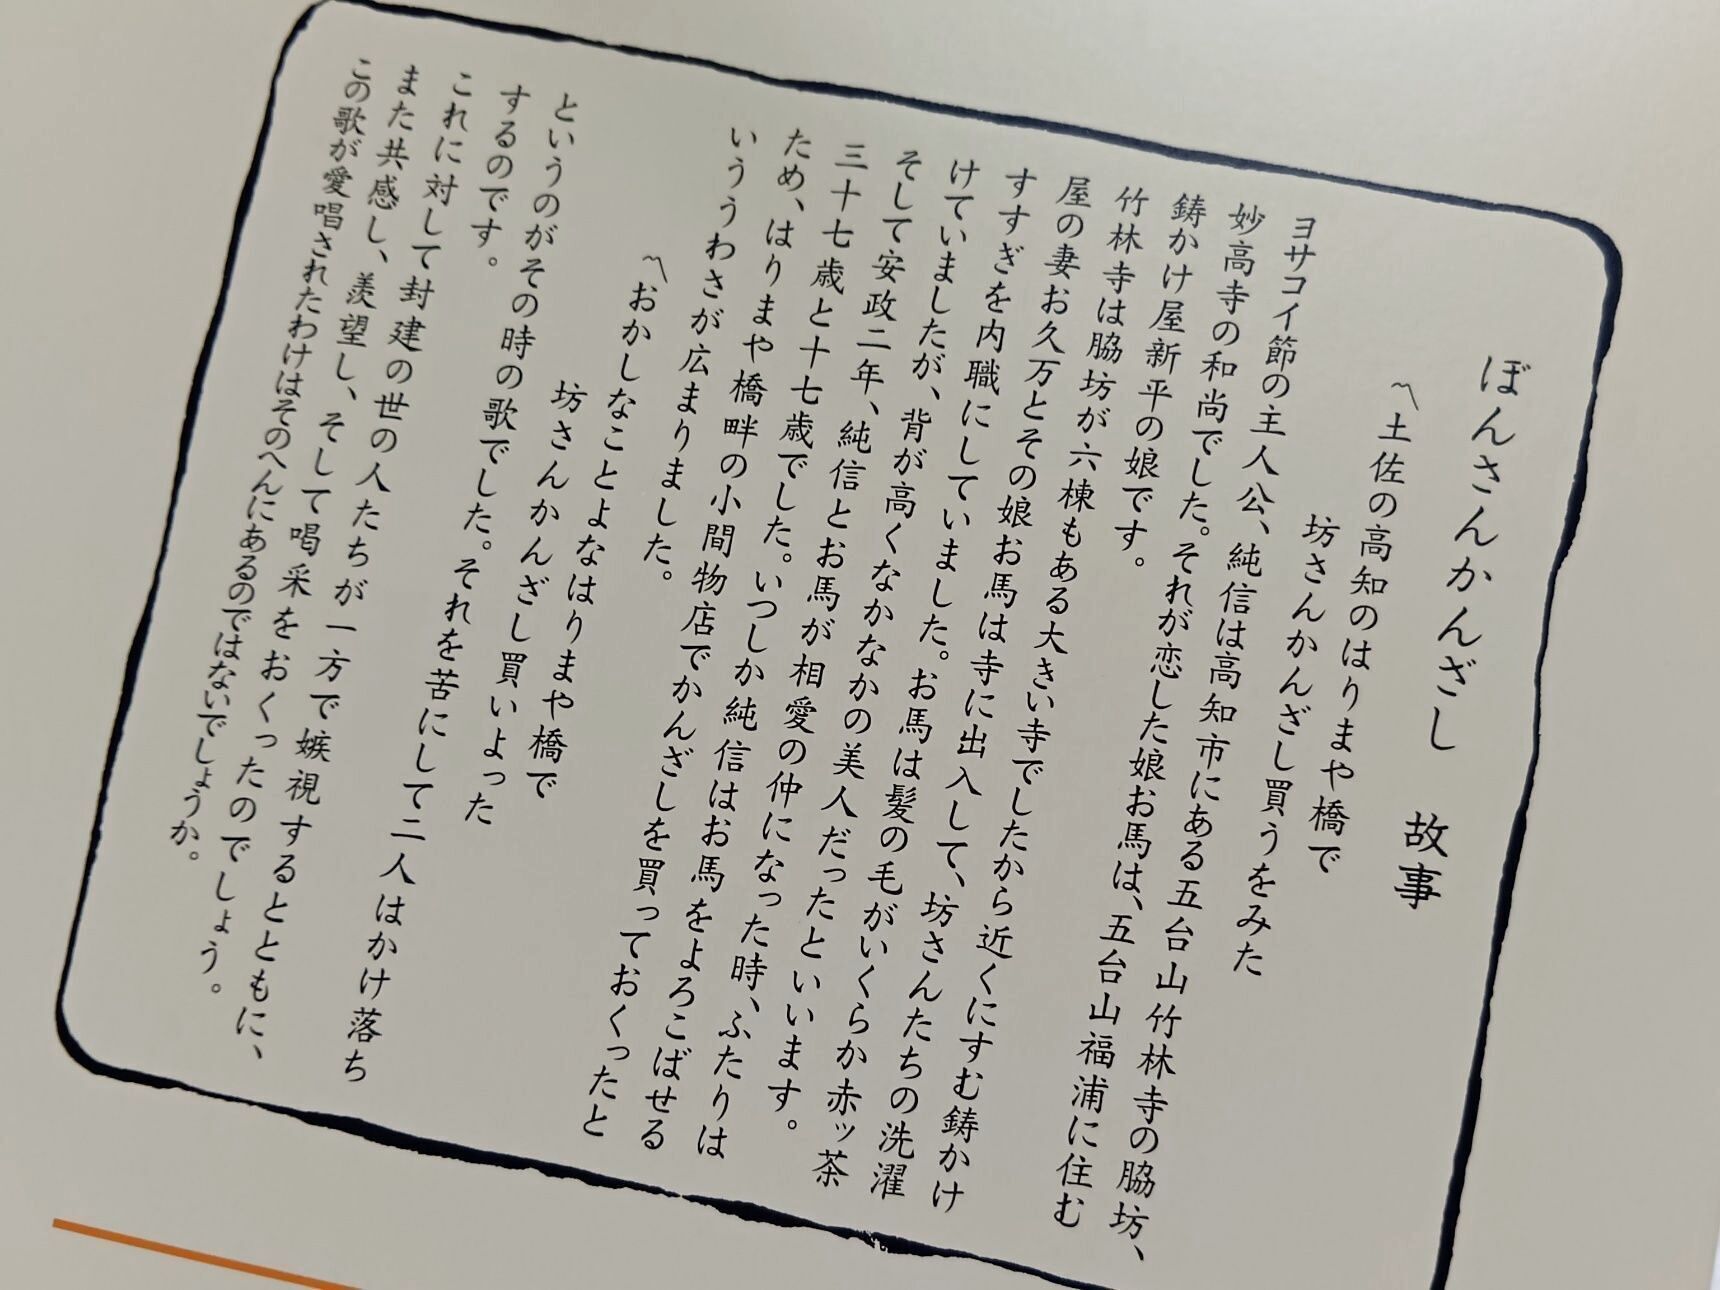 ぼんさんかんざし　故事
〽土佐の高知のはりまや橋で
坊さんかんざし買うをみた
ヨサコイ節の主人公、純信は高知市にある五台山竹林寺の脇坊、
妙高寺の和尚でした。それが恋した娘お馬は、五台山福浦に住む
鋳かけ屋新平の娘です。
竹林寺は脇坊が六棟もある大きい寺でしたから近くにすむ鋳かけ
屋の妻お久万とその娘お馬は寺に出入して、坊さんたちの洗濯
すすぎを内職にしていました。お馬は髪の毛がいくらか赤ッ茶
けていましたが、背が高くなかなかの美人だったといいます。
そして安政二年、純信とお馬が相愛の仲になった時、ふたりは
三十七歳と十七歳でした。いつしか純信はお馬をよろこばせる
ため、はりまや橋畔の小間物店でかんざしを買っておくったと
いううわさが広まりました。
〽おかしなことよなはりまや橋で
坊さんかんざし買いよった
というのがその時の歌でした。それを苦にして二人はかけ落ち
するのです。
これに対して封建の世の人たちが一方で嫉視するとともに、
また共感し、羨望し、そして喝采をおくったのでしょう。
この歌が愛唱されたわけはそのへんにあるのではないでしょうか。